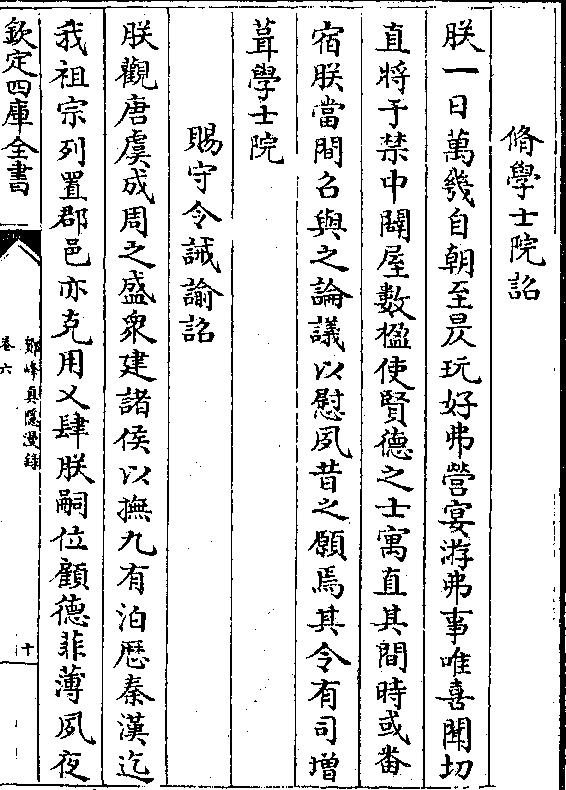 脩學士院詔
朕一日萬㡬自朝至昃玩好弗營宴游弗事唯喜聞切
直將于禁中闢屋數楹使賢德之士寓直其間時或畨
宿朕當間召與之論議以慰夙昔之願焉其令有司增
葺學士院
賜守令誡諭詔
朕觀唐虞成周之盛衆建諸侯以撫九有洎歴秦漢迄
我祖宗列置郡邑亦克用乂肆朕嗣位顧德菲薄夙夜
欽定四庫全書
鄮峰真隠漫録
卷六
十